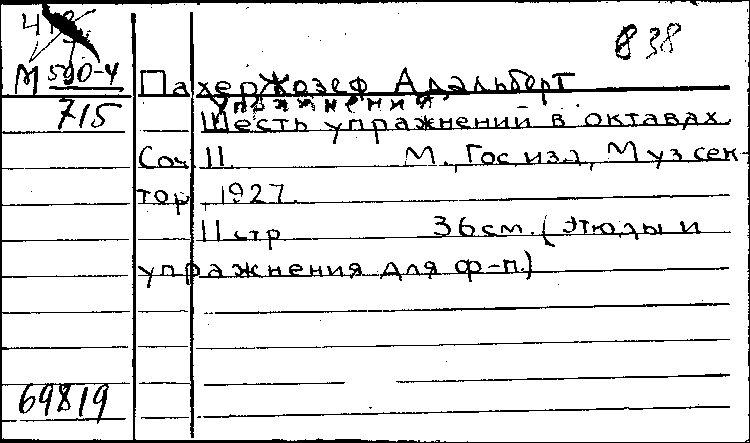 в 38
М 500-4
715
Пахер Жозеф Адальберт
Упражнения
Шесть упражнений в октавах
Соч. 11. М., Гос. изд., Муз сек-
тор, 1927.
11 стр 36 см. (Этюды и
упражнения для ф-п.)
69819